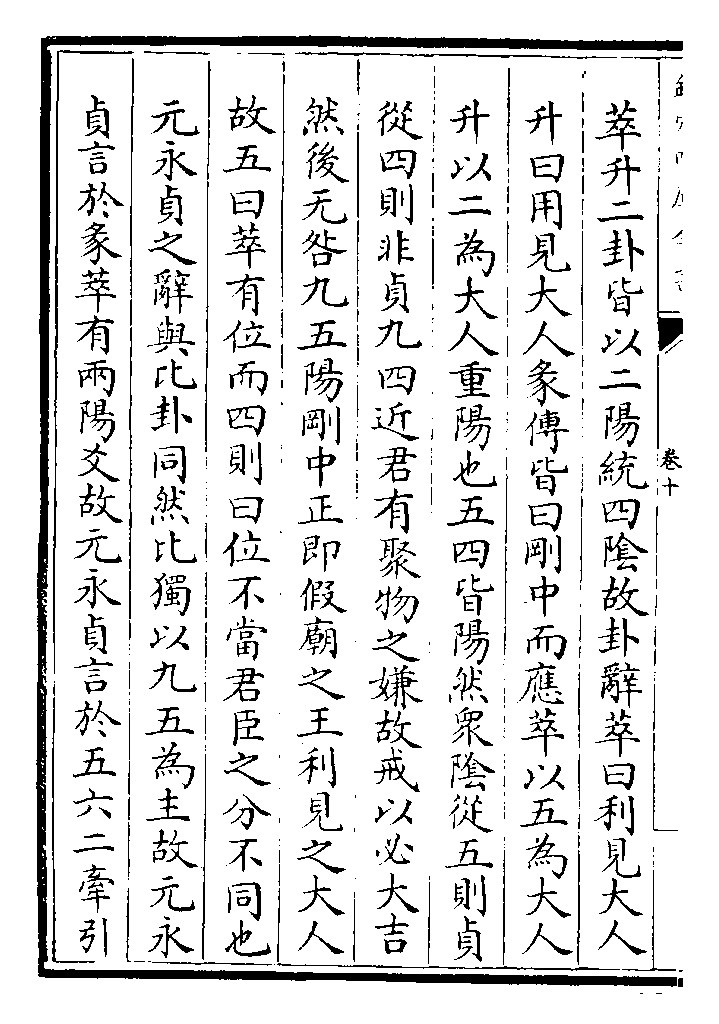 卷十
萃升二卦皆以二陽統四隂故卦辭萃曰利見大人
升曰用見大人彖傳皆曰剛中而應萃以五為大人
升以二為大人重陽也五四皆陽然衆隂從五則貞
從四則非貞九四近君有聚物之嫌故戒以必大吉
然後无咎九五陽剛中正即假廟之王利見之大人
故五曰萃有位而四則曰位不當君臣之分不同也
元永貞之辭與比卦同然比獨以九五為主故元永
貞言於彖萃有兩陽爻故元永貞言於五六二牽引